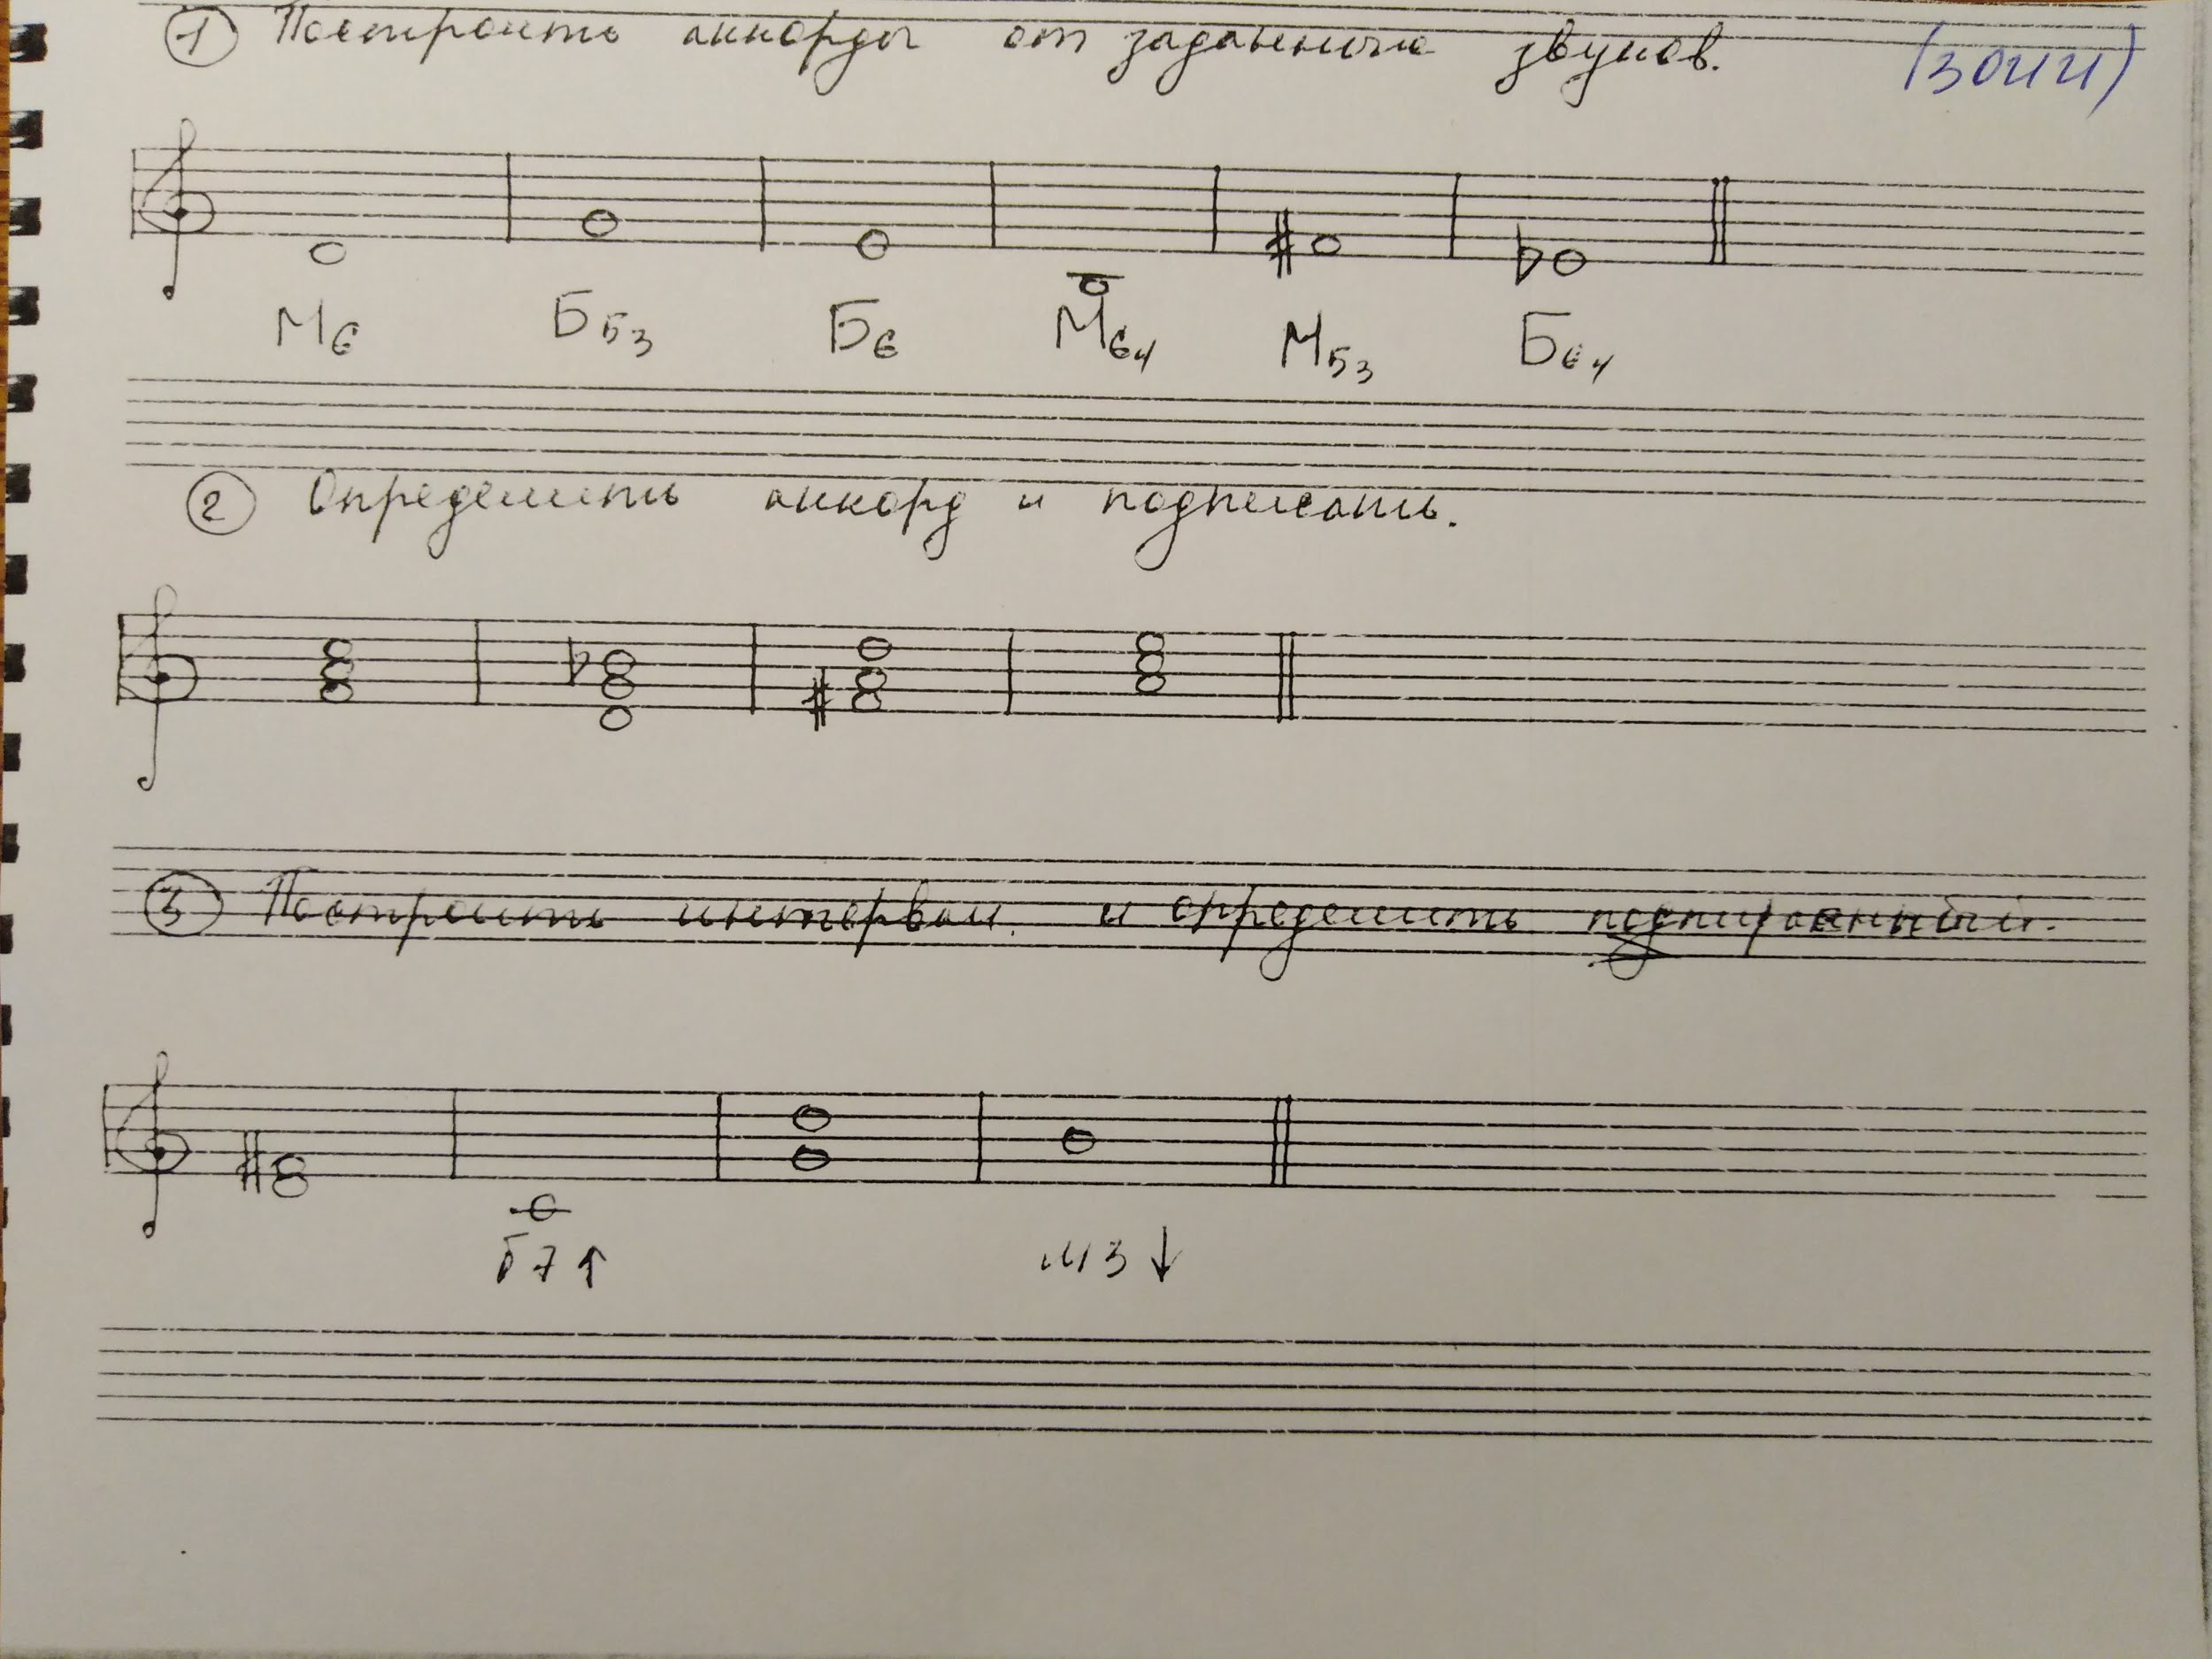 1 Построить аккорды от заданных звуков. (30 ИИ)
М6 Б53 Б6 М64 М53 Б64
2 Определить аккорд и подписать.
3 Построить интервал и определить
Б7↑ м3↓